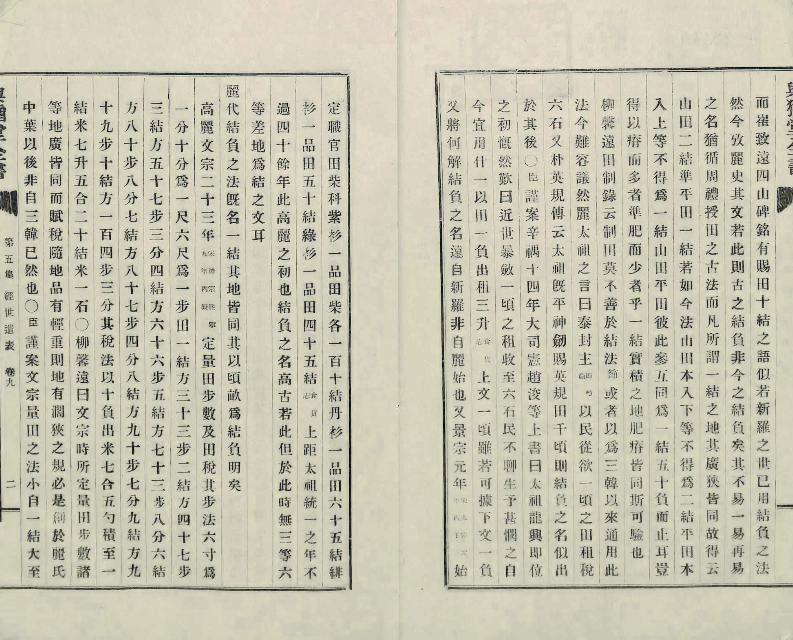 而崔致遠四山碑銘有賜田十結之語似若新羅之世已用結負之法
然今攷麗史其文若此則古之結負非今之結負矣其不易一易再易
之名猶循周禮授田之古法而凡所謂一結之地其廣狹皆同故得云
山田二結準平田一結若如今法山田本入下等不得爲二結平田本
入上等不得爲一結山田平田彼此參互同爲一結五十負而止耳豈
得以瘠而多者準肥而少者乎一結實積之地肥瘠皆同斯可驗也
柳馨遠田制錄云制田莫不善於結法 或者以爲三韓以來通用此
法今難容議然麗太祖之言曰泰封主 以民從欲一頃之田租稅
六石又朴英規傳云太祖旣平神劒賜英規田千頃則結負之名似出
於其後〇臣謹案辛禑十四年大司憲趙浚等上書曰太祖龍興即位
之初慨然歎曰近世暴斂一頃之租收至六石民不聊生予甚憫之自
今宜用什一以田一負出租三升 上文一頃雖若可據下文一負
又將何解結負之名遠自新羅非自麗始也又景宗元年 始
定職官田柴科紫衫一品田柴各一百十結丹衫一品田六十五結緋
衫一品田五十結綠衫一品田四十五結食貨志上距太祖統一之年不
過四十餘年此高麗之初也結負之名高古若此但於此時無三等六
等差地爲結之文耳
麗代結負之法旣名一結其地皆同其以頃畝爲結負明矣
高麗文宗二十三年 定量田步數及田稅其步法六寸爲
一分十分爲一尺六尺爲一步田一結方三十三步二結方四十七步
三結方五十七步三分四結方六十六步五結方七十三步八分六結
方八十步八分七結方八十七步四分八結方九十步七分九結方九
十九步十結方一百四步三分其稅法以十負出米七合五勺積至一
結米七升五合二十結米一石〇柳馨遠曰文宗時所定量田步數諸
等地廣皆同而賦稅隨地品有輕重則地有濶狹之規必是創於麗氏
中葉以後非自三韓已然也〇臣謹案文宗量田之法小自一結大至
第五集 經世遺表 卷九
二